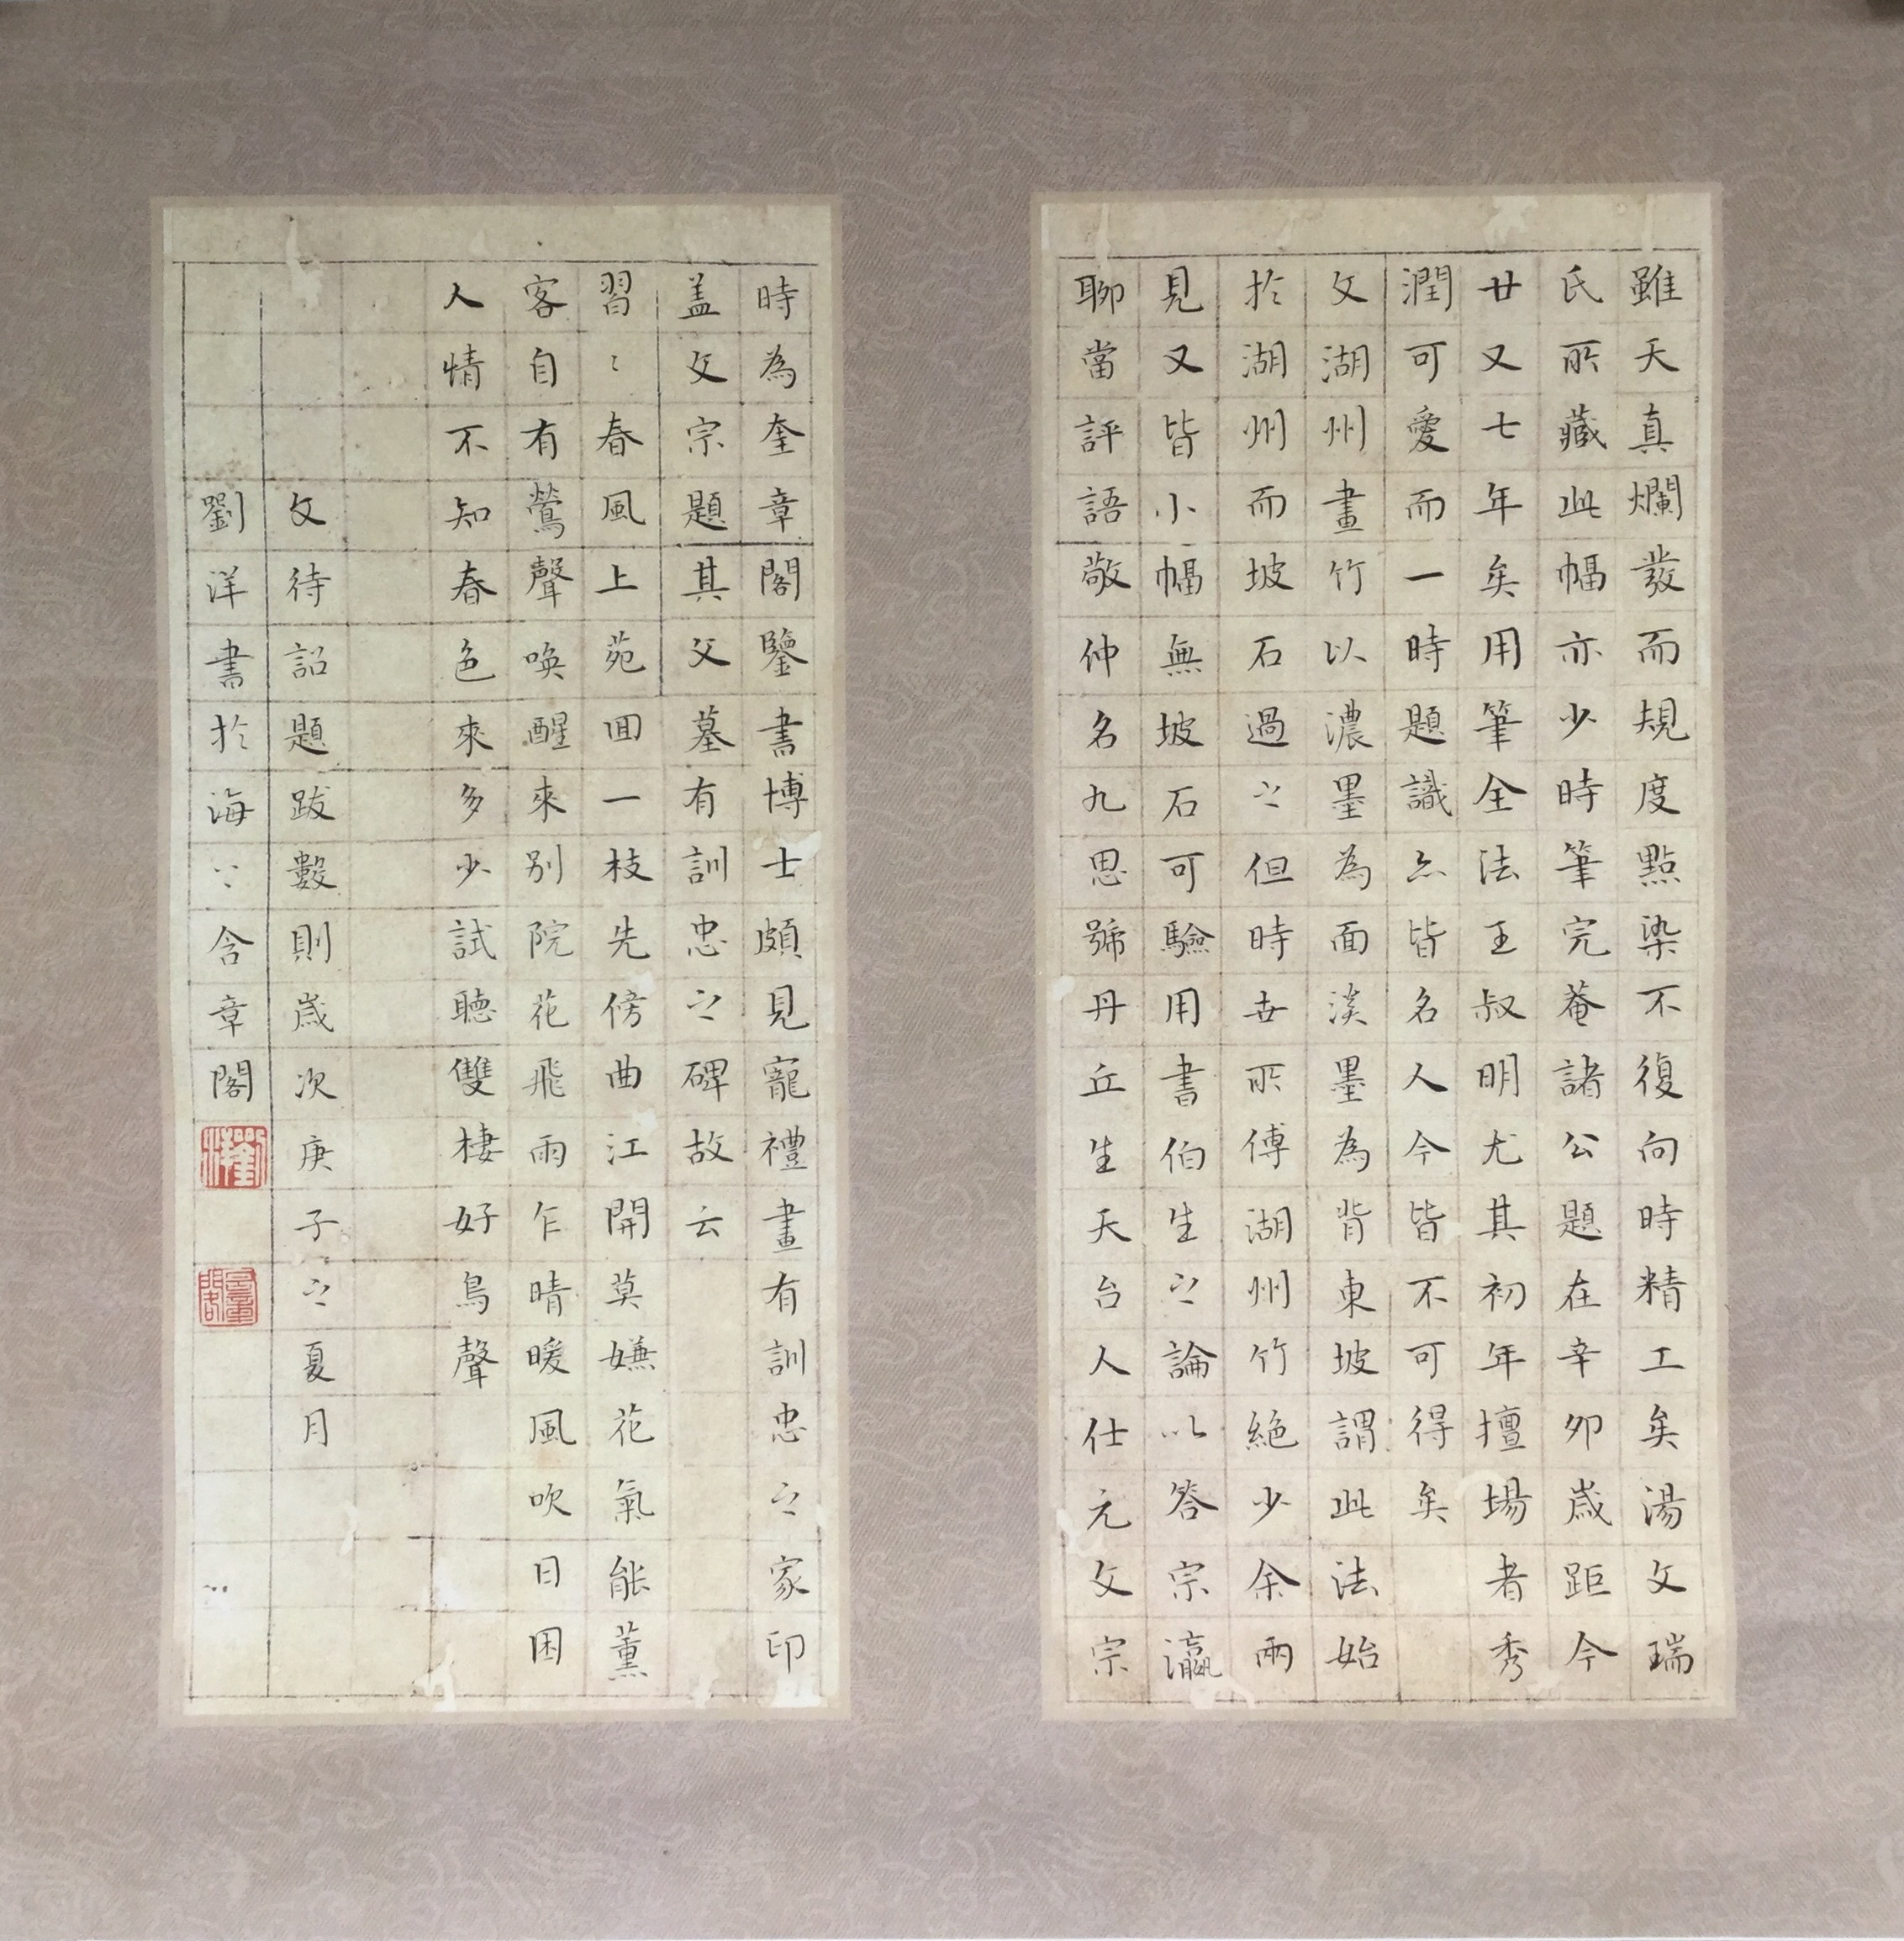 雖天真爛發而規度點染不復向時精工矣湯文瑞
氏所藏此幅亦少時筆完菴諸公題在辛卯歲距今
廿又七年矣用筆全法王叔明尤其初年擅場者秀
潤可愛而一時題識亦皆名人今皆不可得矣
文湖州畫竹以濃墨為面淡墨為背東坡謂此法始
於湖州而坡石過之但時世所傳湖州竹絕少余兩
見又皆小幅無坡石可驗用書伯生之論以答宗瀛
聊當評語敬仲名九思號丹丘生天台人仕元文宗
時為奎章閣鑒書博士頗見寵禮畫有訓忠之家印
盖文宗題其父墓有訓忠之碑故云
習〻春風上苑囬一枝先傍曲江開莫嫌花氣能薰
客自有鶯聲喚醒來別院花飛雨乍晴暖風吹日困
人情不知春色來多少試聽雙棲好鳥聲
文待詔題跋數則歲次庚子之夏月
劉洋書於海上含章閣
劉洋
含章閣